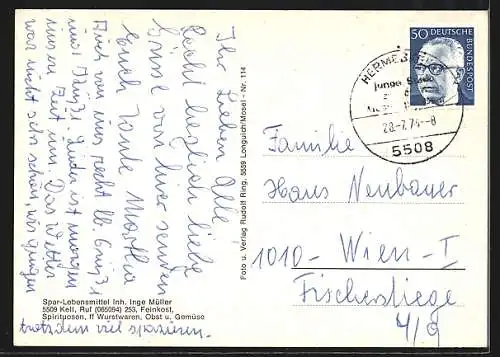 Ihr Lieben Alle!
Recht herzlich liebe
Grüsse von hier senden
Euch Tante Martha
Auch von uns recht lb. Grüße
und Küße. Leider ist morgen
unsere Zeit um. Das Wetter
war nicht sehr schön, wir gingen
trotzdem viel spazieren.
Spar-Lebensmittel Inh. Inge Müller
5509 Kell, Ruf (065094) 253, Feinkost,
Spirituosen, ff Wurstwaren, Obst u. Gemüse
Foto u. Verlag Rudolf Ring, 5559 Longuich/Mosel - Nr. 114
50 DEUTSCHE
BUNDESPOST
junge
28.-7.74-8
5508
Familie
Hans Neubauer
1010-Wien-I
Fischerstiege
4/9